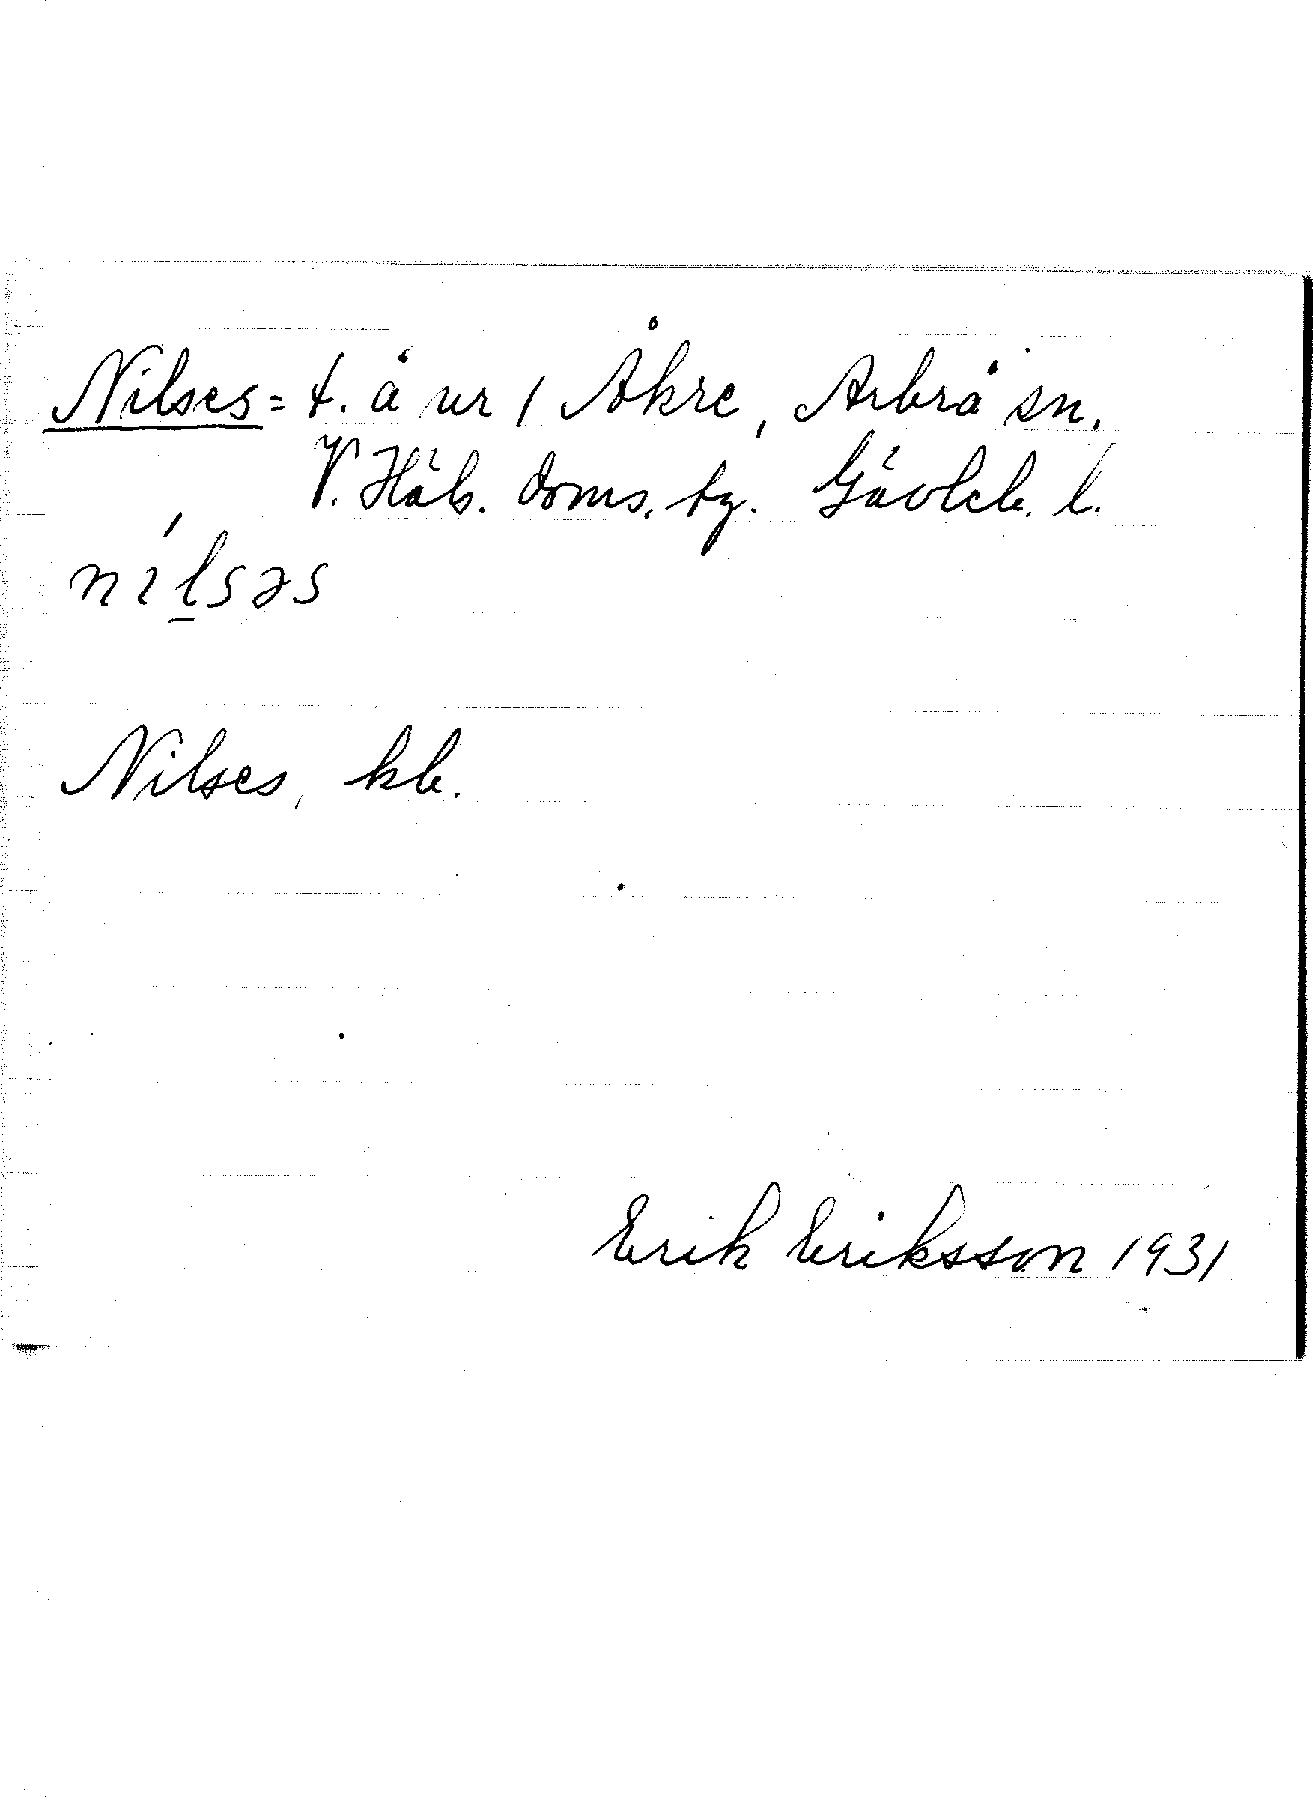 Nilses = t. å nr 1 Åkre, Arbrå sn.
V. Häls. doms. tg. Gävleb. l.
ní̀lsəs
Nilses, kb.
Erik Eriksson 1931